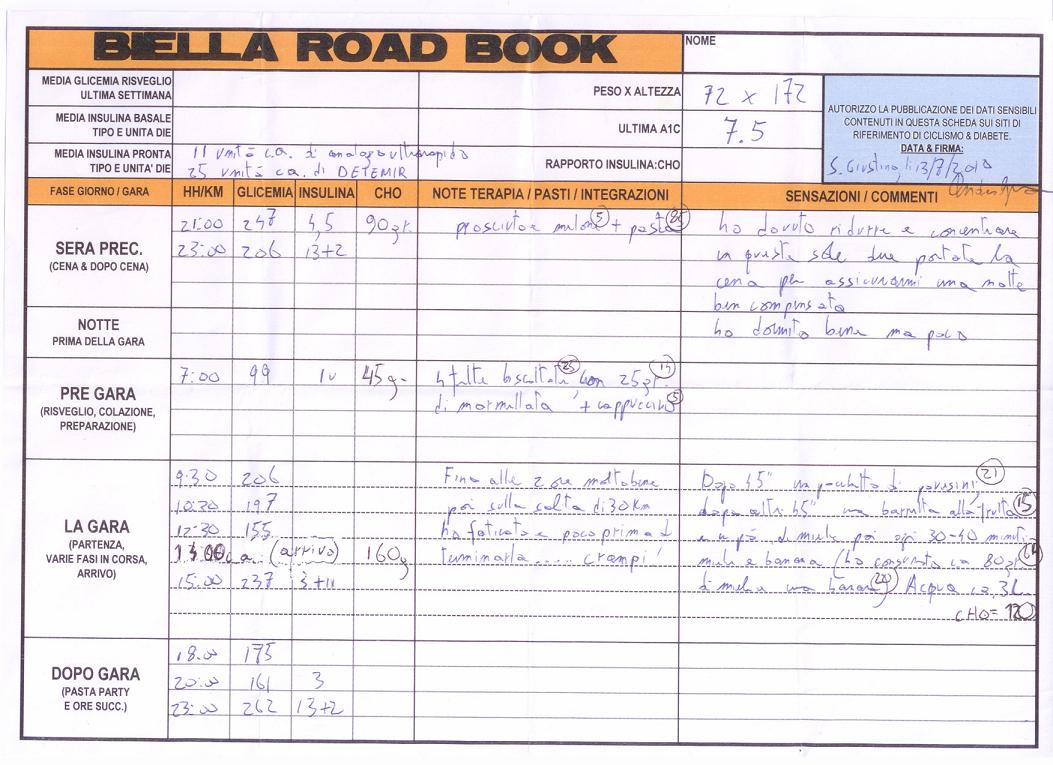 BIELLA ROAD BOOK
NOME
MEDIA GLICEMIA RISVEGLIO
ULTIMA SETTIMANA
PESO X ALTEZZA
72 x 172
MEDIA INSULINA BASALE
TIPO E UNITA DIE
ULTIMA A1C
7.5
MEDIA INSULINA PRONTA
TIPO E UNITA' DIE
11 unità c.a. di analogo ultrarapido
25 unità c.a. di DETEMIR
RAPPORTO INSULINA:CHO
AUTORIZZO LA PUBBLICAZIONE DEI DATI SENSIBILI
CONTENUTI IN QUESTA SCHEDA SUI SITI DI
RIFERIMENTO DI CICLISMO & DIABETE.
DATA & FIRMA:
S. Giustina, li 13/7/2010
FASE GIORNO / GARA HH/KM GLICEMIA INSULINA CHO NOTE TERAPIA / PASTI / INTEGRAZIONI SENSAZIONI / COMMENTI
SERA PREC.
(CENA & DOPO CENA)
21:00 247 4,5 90gr. prosciutto e melone (5) + pasta (85)
23:00 206 13+2
ho dovuto ridurre e concentrare
in queste sole due portate la
cena per assicurarmi una notte
ben compensata
NOTTE
PRIMA DELLA GARA
ho dormito bene ma poco
PRE GARA
(RISVEGLIO, COLAZIONE,
PREPARAZIONE)
7:00 99 1u 45g. 4 fette biscottate (25) con 25gr. (15)
di marmellata + cappuccino (5)
LA GARA
(PARTENZA,
VARIE FASI IN CORSA,
ARRIVO)
9:30 206 Fino alle 2 ore molto bene Dopo 45" un pacchetto di pavesini (21)
10:30 197 poi sulla salita di 30 Km dopo altri 45" una barretta alla frutta (15)
12:30 155 ho faticato e poco prima di e un pò di miele poi ogni 30-40 minuti
13:00 c.a. (arrivo) 160g terminarla .... crampi! miele e banana (ho consumato ca 80gr
15:00 237 di miele una banana (20) Acqua ca. 3L
CHO= 120
DOPO GARA
(PASTA PARTY
E ORE SUCC.)
18.00 175
20:00 161 3
23:00 262 13+2